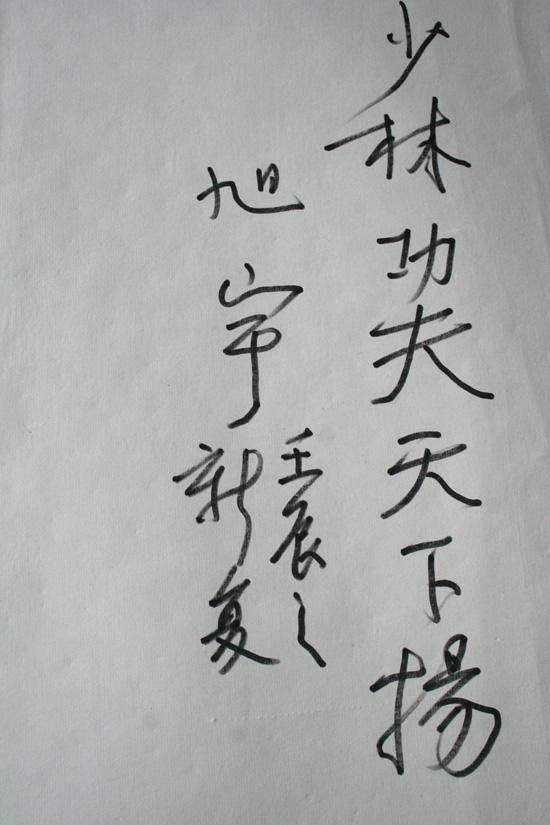 少林功夫天下揚
壬辰之
旭宇新夏